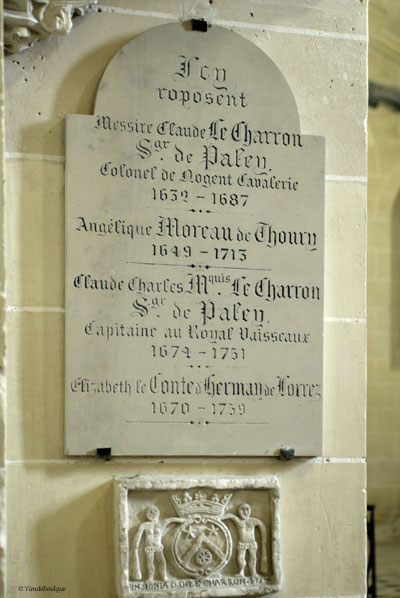 Icy
roposent
Messire Claude Le Charron
Sgr de Paley
Colonel de Nogent Cavalerie
1632 - 1687
Angélique Moreau de Thoury
1649 - 1713
Claude Charles Mquis Le Charron
Sgr de Paley
Capitaine au Royal Vaisseaux
1674 - 1751
Elizabeth le Conte d'Hermay de Lorrez
1670 - 1759
INSIGNIA LE CHARRON
© Vandebeulque